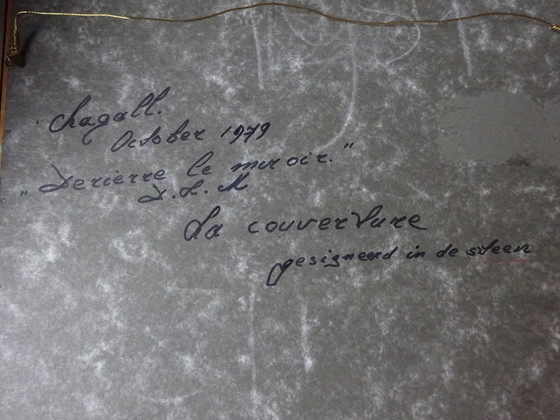 Chagall.
October 1979
„Derierre le miroir."
D.L.M
La couverture
gesigneerd in de steen